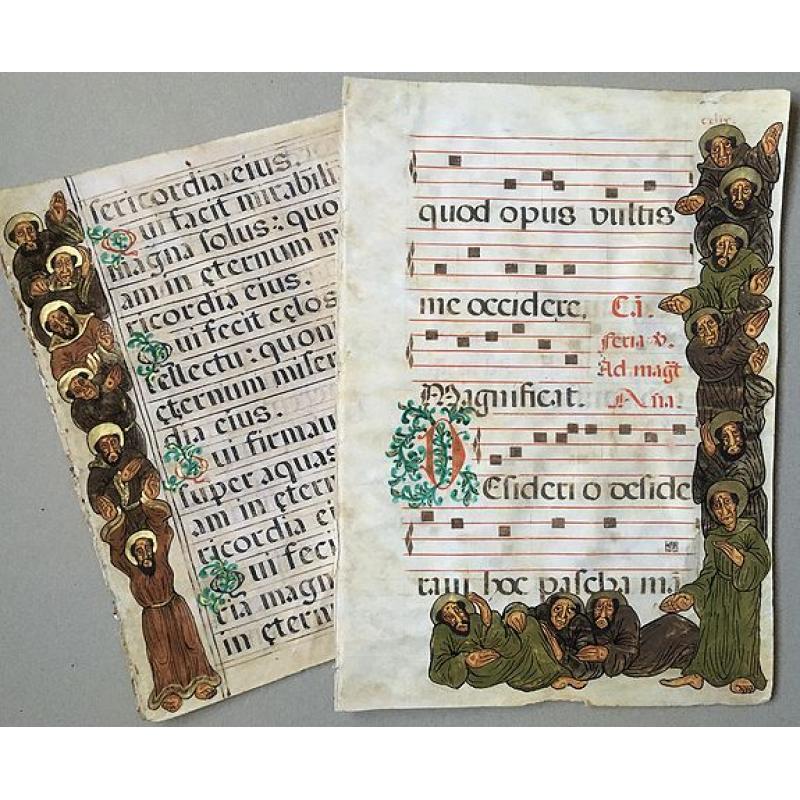 sericordia eius.
Qui facit mirabili
magna solus: quo
am in ęternum m
ricordia eius.
Qui fecit cęlos
tellectu: quon
ęternum miser
dia eius.
Qui firmau
super aquas
am in ęter
ricordia ei
Qui feci
ria magn
in ętern
quod opus vultis
me occidere. C.i.
feria v.
Ad magt̄
Magnificat. Aña.
DEsideri o deside
raui hoc pascha mā